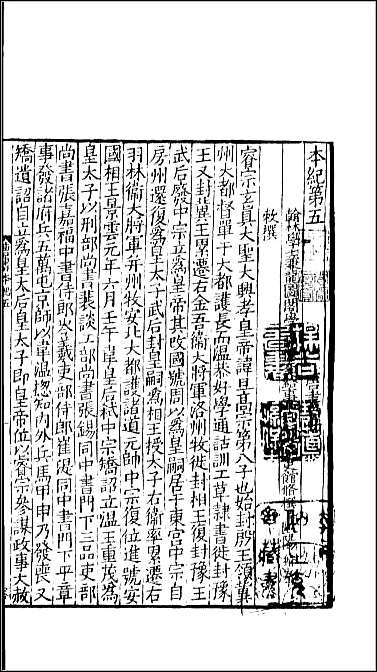 本紀第五
翰林學士兼龍圖閣學士
敕撰
睿宗玄真大聖大興孝皇帝諱旦高宗第八子也始封殷王領冀
州大都督單于大都護長而溫恭好學通詁訓工草隸書徙封豫
王又封冀王累遷右金吾衛大將軍洛州牧徙封相王復封豫王
武后廢中宗立爲皇帝其改國號周以爲皇嗣居于東宮中宗自
房州還復爲皇太子武后封皇嗣爲相王授太子右衛率累遷右
羽林衛大將軍并州牧安北大都護諸道元帥中宗復位進號安
國相王景雲元年六月壬午韋皇后弑中宗矯詔立溫王重茂爲
皇太子以刑部尚書裴談工部尚書張錫同中書門下三品吏部
尚書張嘉福中書侍郎岑羲吏部侍郎崔湜同中書門下平章
事發諸府兵五萬屯京師以韋溫揔知內外兵馬甲申乃發喪又
矯遺詔自立爲皇太后皇太子即皇帝位以睿宗參謀政事大赦